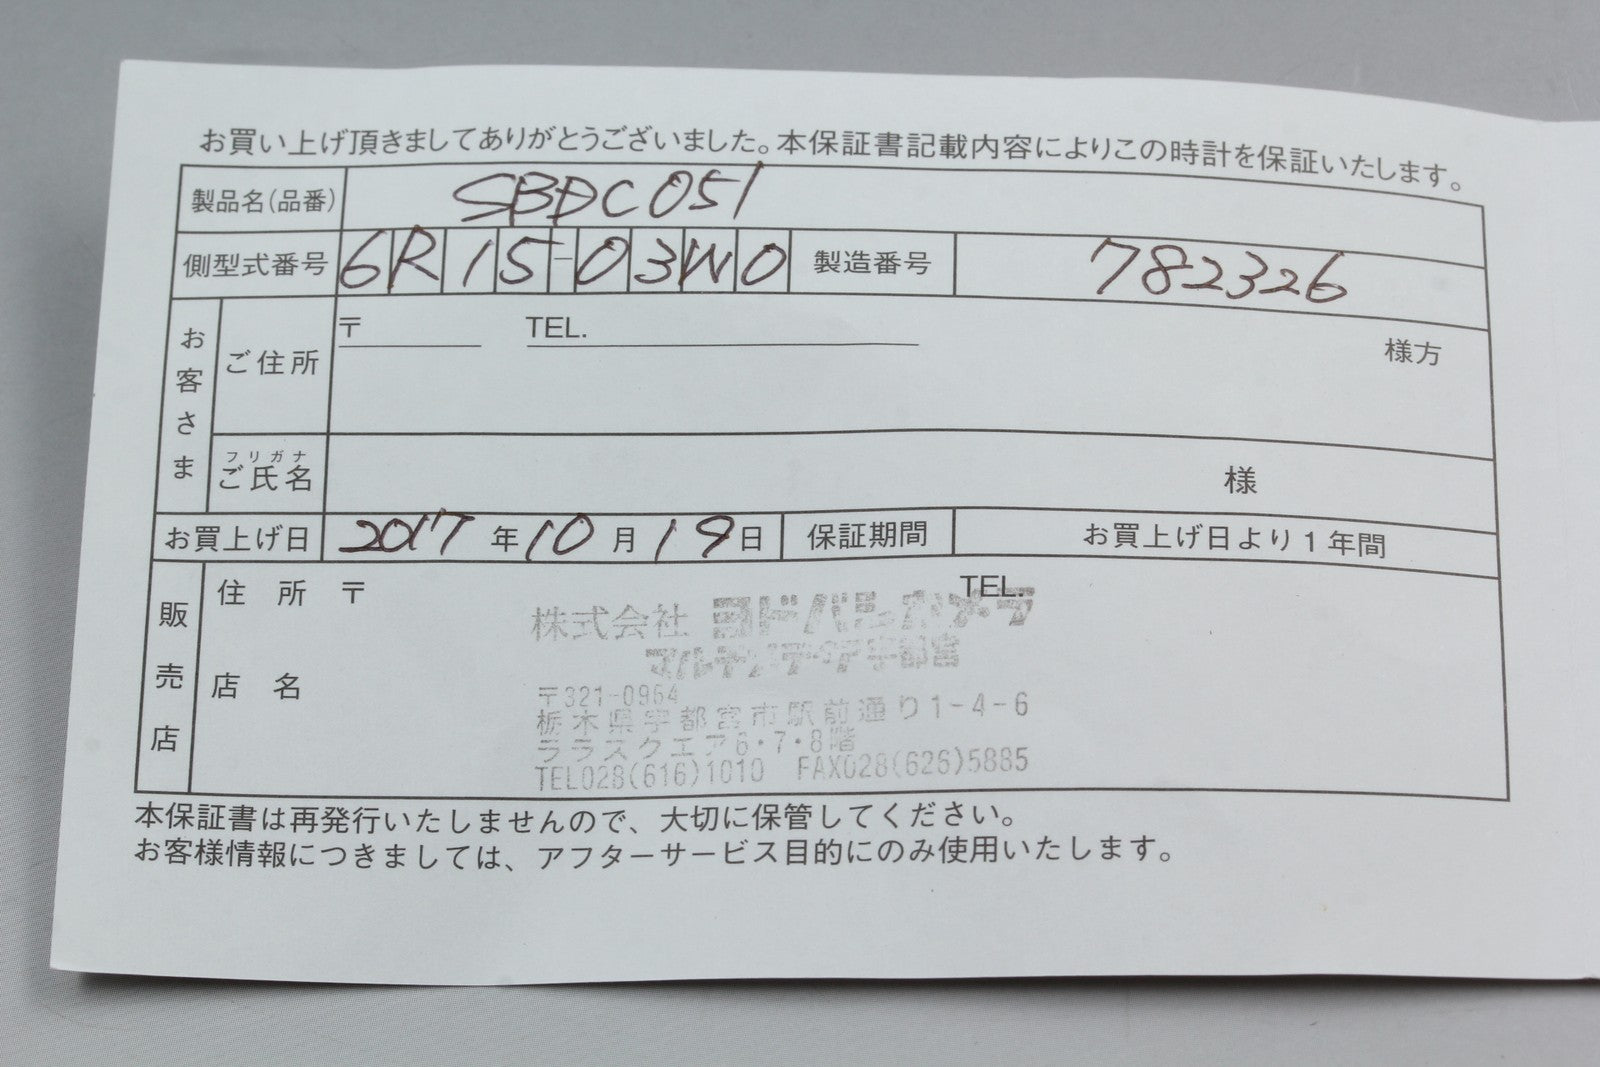 お買い上げ頂きましてありがとうございました。本保証書記載内容によりこの時計を保証いたします。
製品名(品番) SBDC051
側型式番号 6R15-03W0 製造番号 782326
お客さま
ご住所 〒 TEL. 様方
フリガナ
ご氏名 様
お買上げ日 2017年10月19日 保証期間 お買上げ日より1年間
販売店
住所 〒 TEL.
株式会社 ヨドバシカメラ
マルチメディア宇都宮
店名
〒321-0964
栃木県宇都宮市駅前通り1-4-6
ララスクエア6・7・8階
TEL028(616)1010 FAX028(626)5885
本保証書は再発行いたしませんので、大切に保管してください。
お客様情報につきましては、アフターサービス目的にのみ使用いたします。